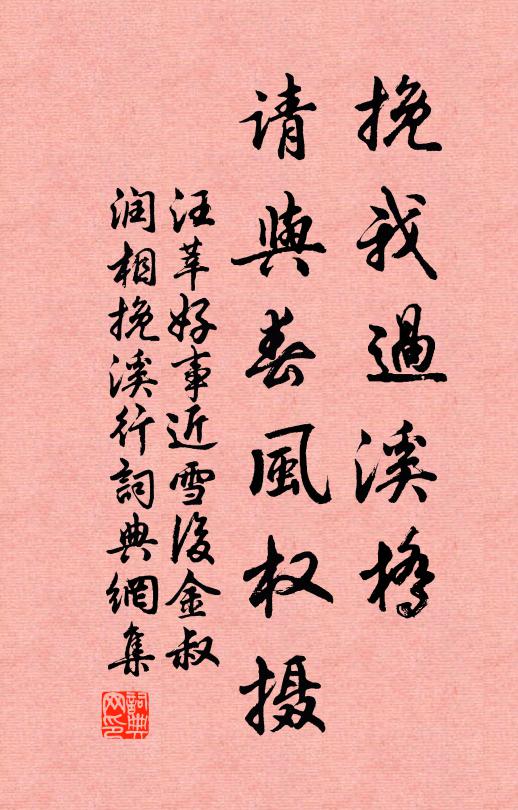 挽我過溪橋
请與春風权摄
汪莘好事近雪後金叔
润相挽溪行詞典網集
詞典网印